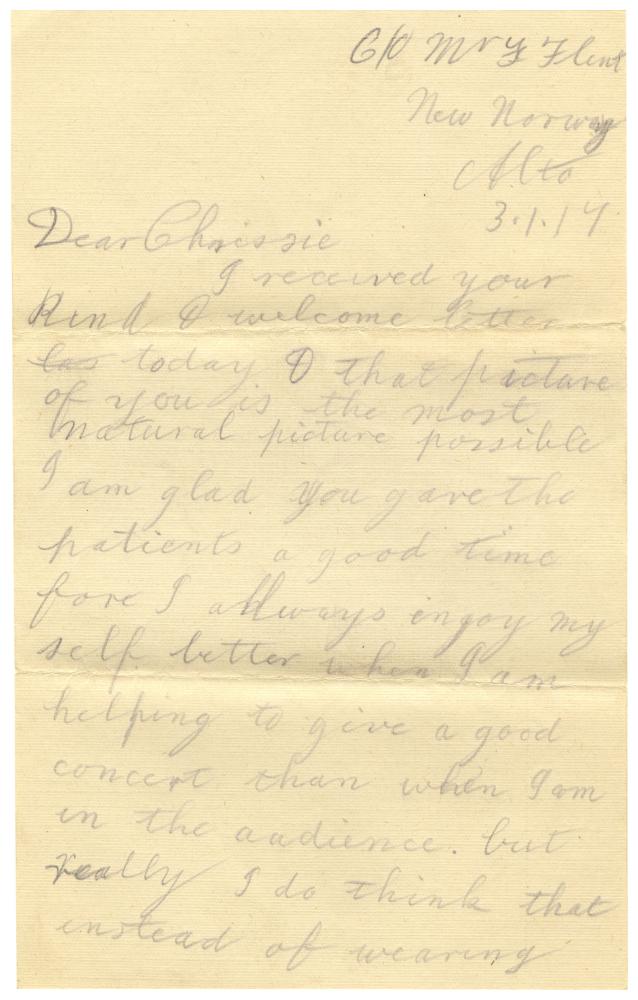 C/O Mr F Flint
New Norway
Alta
3.1.17
Dear Chrissie
I received your
Kind & welcome letter
las today & that picture
of you is the most
natural picture possible
I am glad you gave the
patients a good time
fore I allways engoy my
self better when I am
helping to give a good
concert than when I am
in the audience. but
really I do think that
instead of wearing